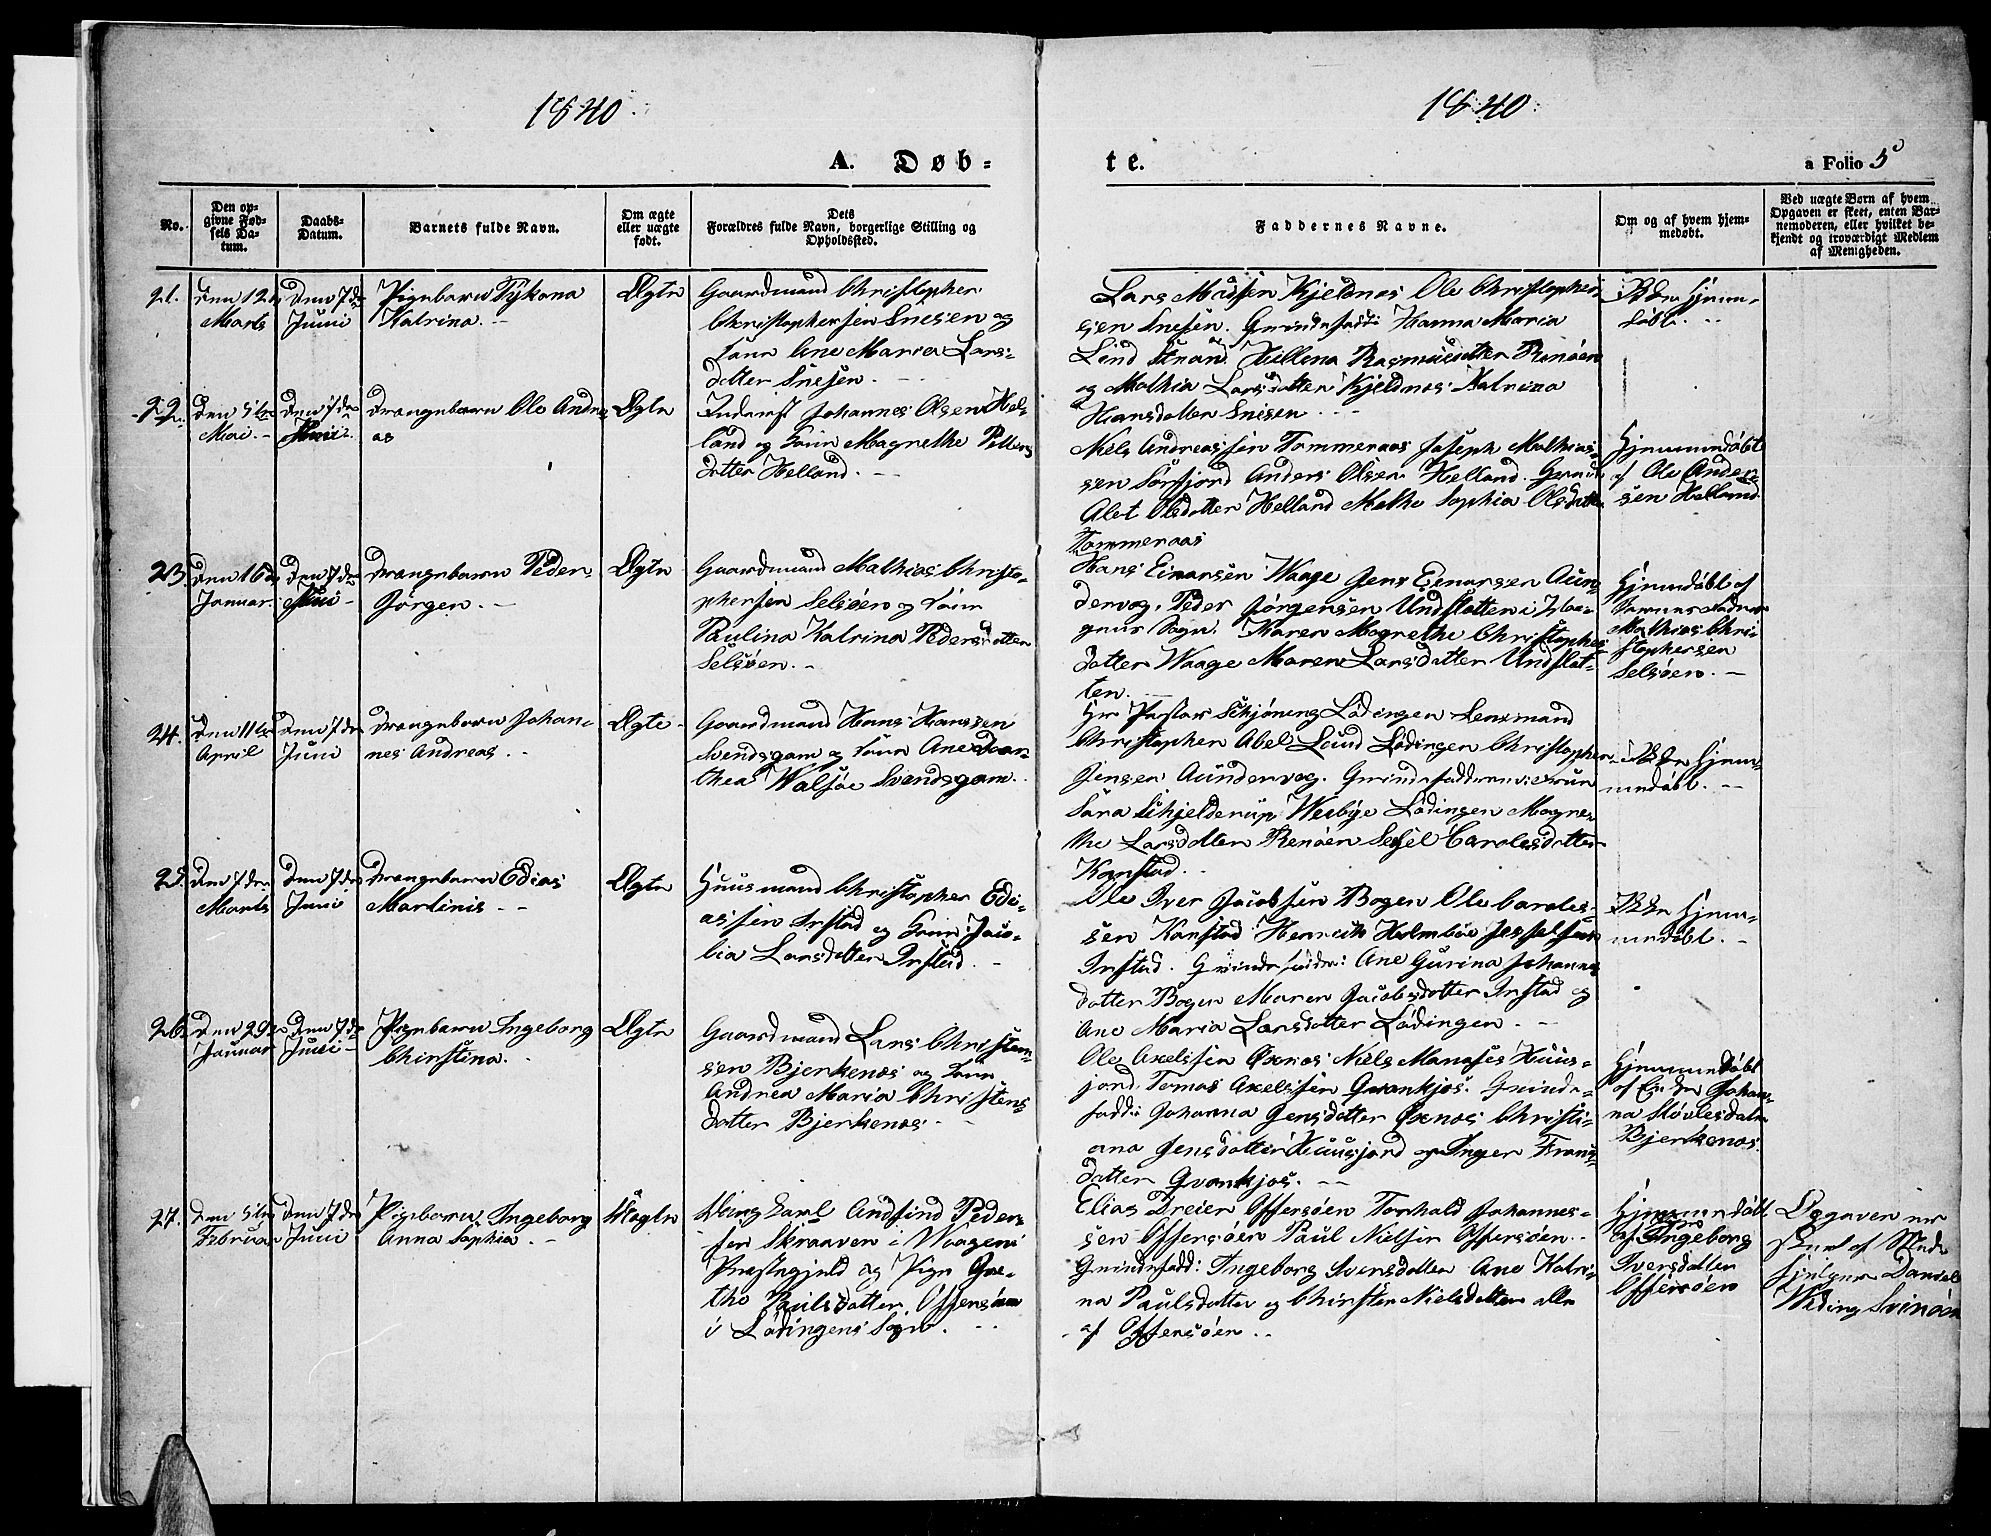 1840.
1840.
A. Døb=
te.
a Folio 5
No.
Den op=
givne Fød=
sels Da=
tum.
Daabs=
Datum.
Barnets fulde Navn.
Om ægte
eller uægte
født.
Dets
Forældres fulde Navn, borgerlige Stilling og
Opholdssted.
Faddernes Navne.
Om og af hvem hjem=
medøbt.
Ved uægte Børn af hvem
Opgaven er skeet, enten Bar=
nemoderen, eller hvilket be=
kjendt og troværdigt Medlem
af Menigheden.
21.
den 12
Marts
den 7de
Juni
Pigebarn Tykona
Katrina.
Ægte
Gaardmand Christopher
Christophersen Snesen og
Kone Ane Maria Lars=
datter Snesen.
Lars Kjeldnes Ole Christopher
sen Snesen. Hanna Maria
Lind Strand Hellena Rasmusdatter Renøen
og Mathia Larsdatter Kjeldnes Katrina
Hansdatter Snesen
Ikke hjem=
døbt.
22.
den 5te
Mai
den 7de
Juni
Drengebarn Ole Andre
as
Ægte
Johannes Olsen Hel=
land og Kone Magrethe Petters
datter Helland.
Niels Andreassen Tommeraas Joseph Mathias=
sen Sørfjord Anders Olsen Helland.
Alet Olsdatter Helland Mathe Sophia Olsdatter
Tommeraas
Hjemmedøbt
af Ole Ander
sen Helland
23.
den 16de
Januar
den 7de
Juni
Drengebarn Peder
Jørgen.
Ægte
Gaardmand Mathias Christo=
phersen Selsøen og Kone
Paulina Katrina Pedersdatter
Selsøen.
Hans Einarsen Waage Jens Einarsen Aun=
dervag. Peder Jørgensen Undstatten i
Sogn. Karen Magrethe Christophers
datter Waage Maren Larsdatter Undstat=
ten.
Hjemdøbt af
Barnets Fader
Mathias Chri=
stophersen
Selsøen.
24.
den 11te
April
den 7de
Juni
Drengebarn Johan=
nes Andreas
Ægte
Gaardmand Hans Hanssen
Svendsgam og Kone Ane Doar
thea Walsøe Svendsgam.
Hr Pastor Schjøning Lødingen Lensmand
Christopher Abel Lund Lødingen Christopher
Jensen Aundervag.
Sara Schjelderup Wesbye Lødingen Magre
the Larsdatter Renøen Sesel Carolesdatter
Kanstad.
Ikke hjem=
medøbt.
25.
den 7de
Marts
den 7de
Juni
Drengebarn Edias
Martinis
Ægte
Huusmand Christopher Edi=
assen Irstad og Kone Jaco=
bia Larsdatter Irstad.
Ole Iver Jacobsen Bogen Ole Caroles=
sen Kanstad Henrich Holmboe
Irstad. Ane Gurina Johannes
datter Bogen Maren Jacobsdatter Irstad og
Ane Maria Larsdatter Lødingen.
Ikke hjem=
medøbt.
26.
den 29
Januar
den 7de
Juni
Pigebarn Ingeborg
Christina.
Ægte
Gaardmand Lars Christen=
sen Bjerkenæs og Kone
Andrea Maria Christens
datter Bjerkenæs.
Ole Axelssen Oxnæs Niels Manases Kuus=
jord. Tomas Axelssen Qvankjos. Qvinde=
fadd: Johanna Jensdatter Oxnæs Christi=
ana Jensdatter Kuusjord og Inger Frans=
datter Qvankjos.
Hjemmedøbt
af Johan=
na
Bjerkenæs.
27.
den 5te
Februar
den 7de
Juni
Pigebarn Ingeborg
Anna Sophia.
Uægte
Ungkarl Andfind Peder=
sen Skraaven i Waagens
Præstegjeld og Pige Gre=
the Paulsdatter Offersøen
i Lødingens Sogn.
Elias Dreier Offersøen Torhald Johannes=
sen Offersøen Paul Nielsen Offersøen.
Qvindefadd: Ingeborg Iversdatter Ane Katri=
na Paulsdatter og Christen Nielsdatter alle
af Offersøen.
Hjemmedøbt
af Ingeborg
Iversdatter
Offersøen
Opgaven er
skeet af Mede
hjelper Daniel
Widing Svinøen